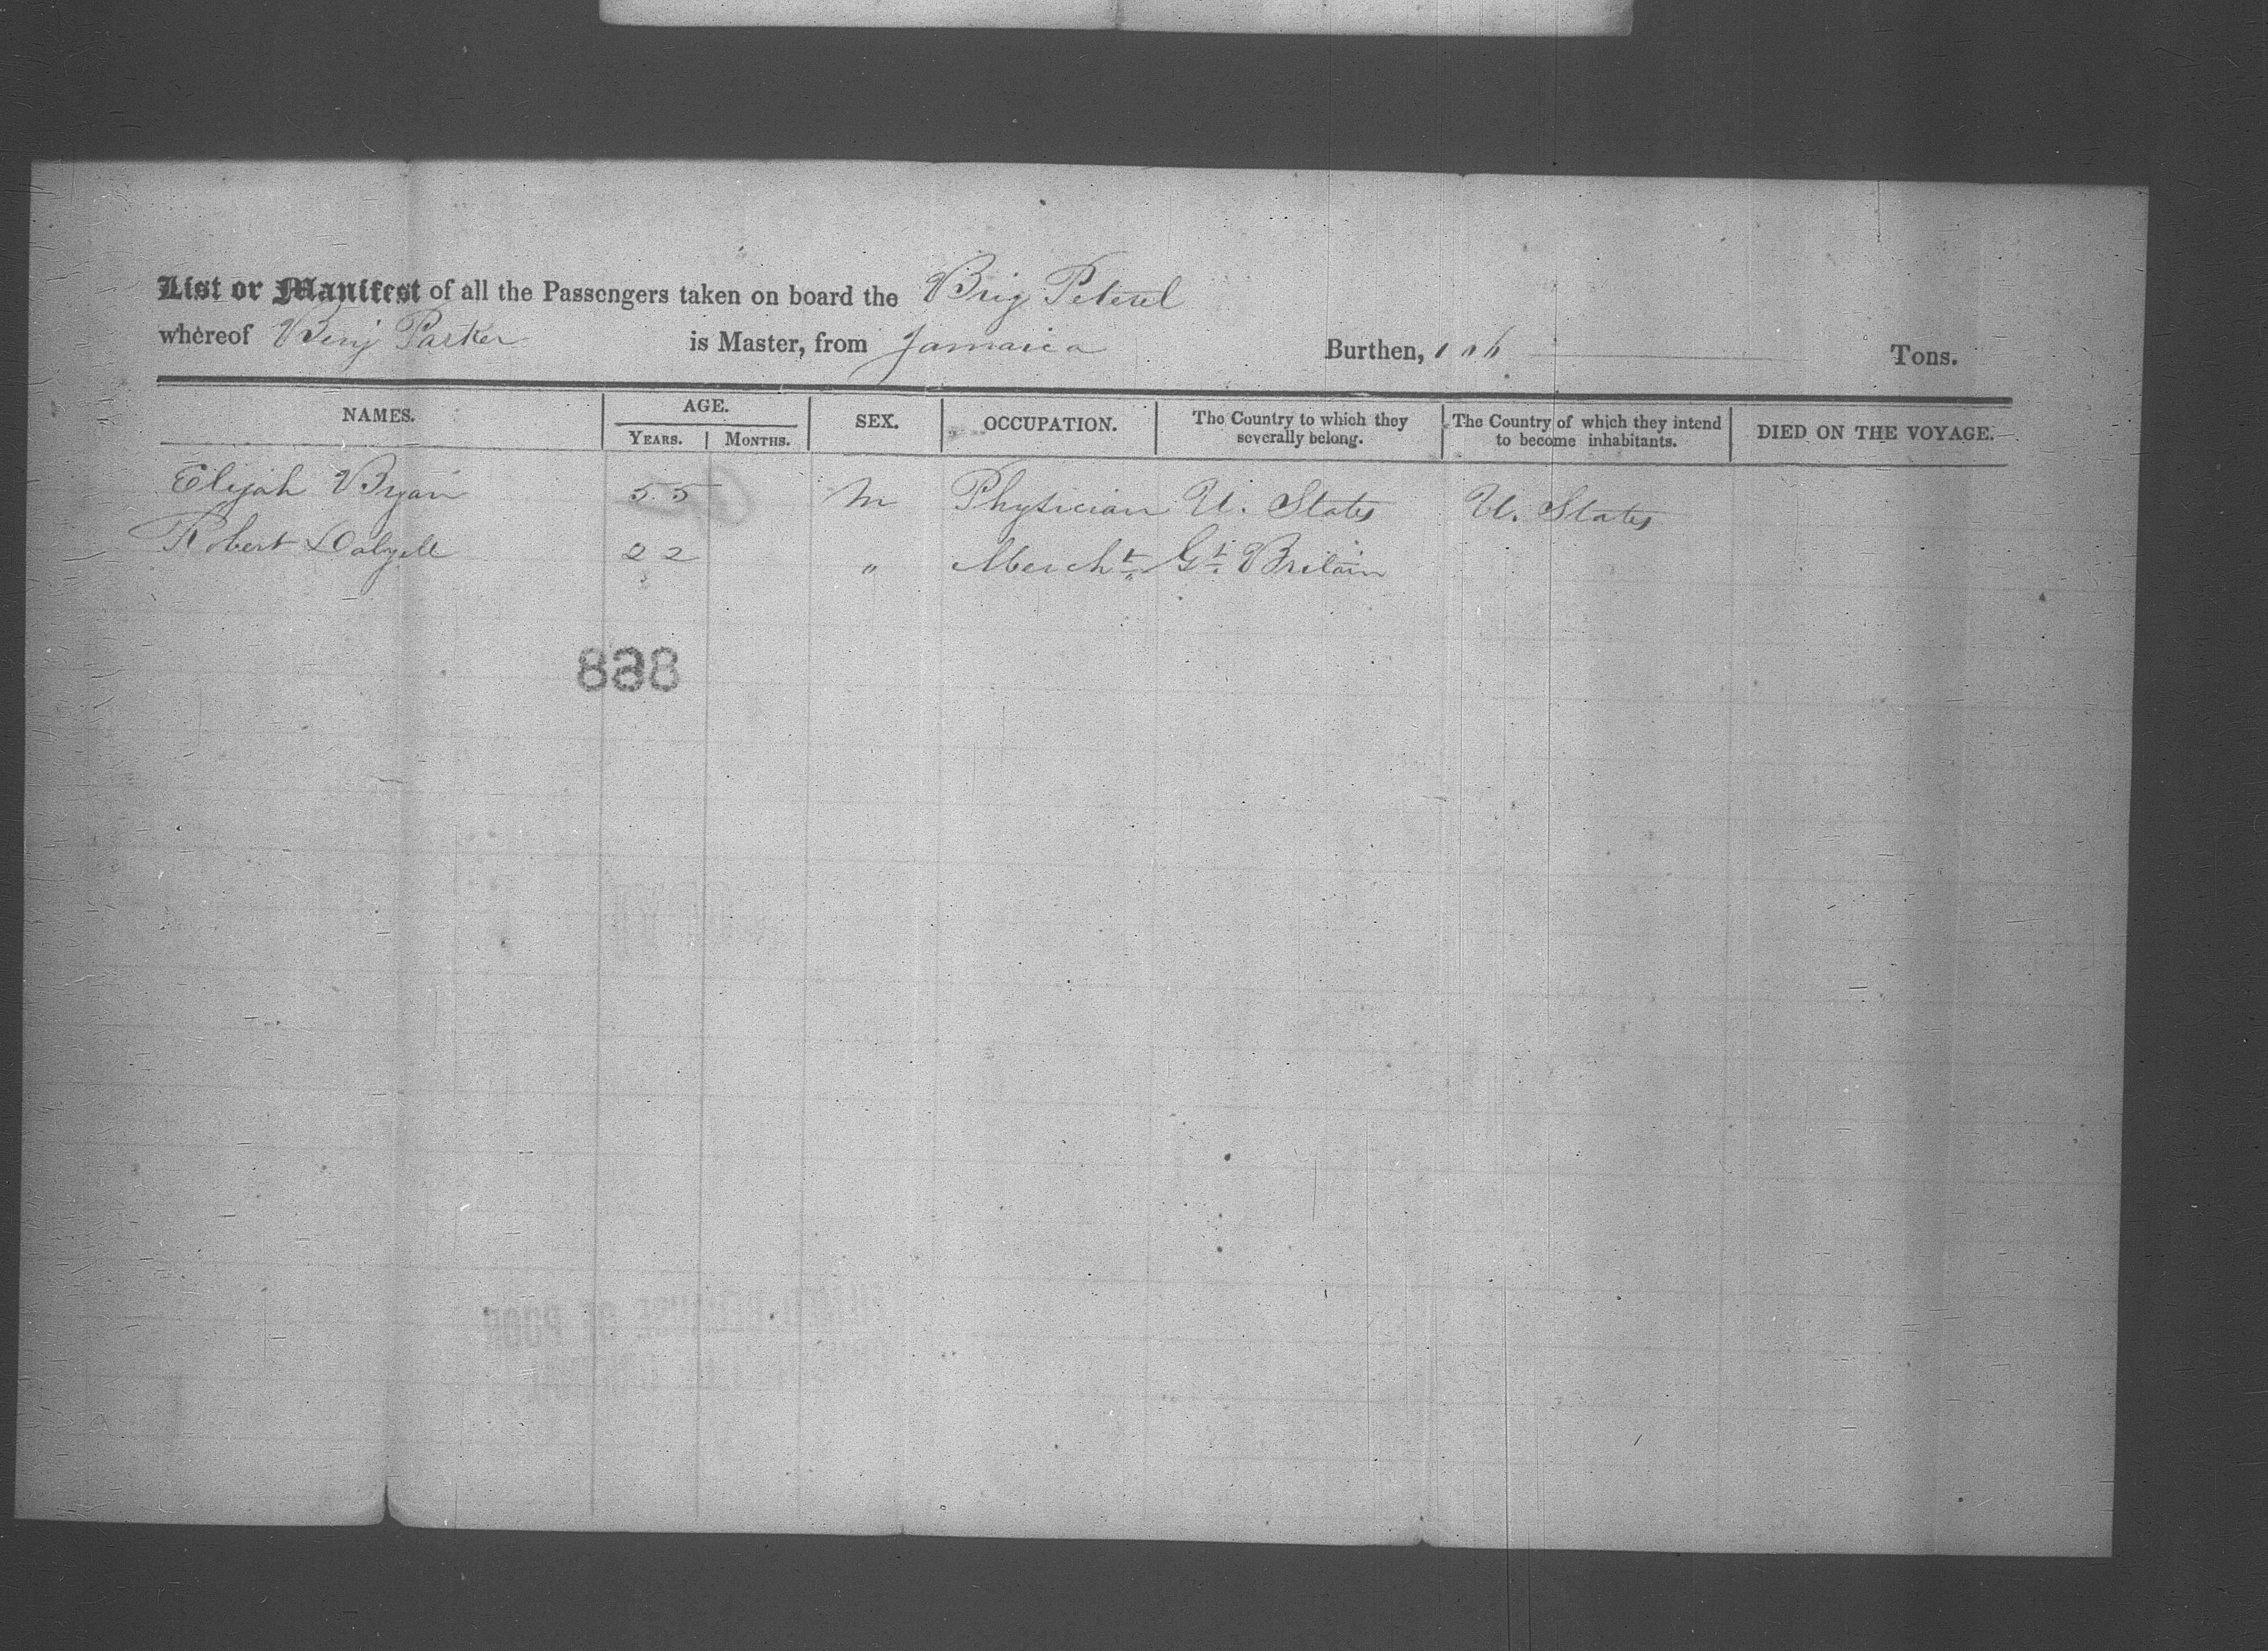 List or Manifest of all the Passengers taken on board the Brig Peterel
whereof Benj Parker is Master, from Jamaica Burthen, 106 Tons.
NAMES. AGE. SEX. OCCUPATION. The Country to which they severally belong. The Country of which they intend to become inhabitants. DIED ON THE VOYAGE.
YEARS. MONTHS.
Elijah Bryan 55 M Physician U. States U. States
Robert Dalzell 22 " Mercht Gt. Britain
868
BECAUSE OF POOR